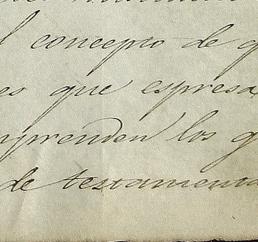 l concepto de q
es que espresa
mprenden los g
de testamenta